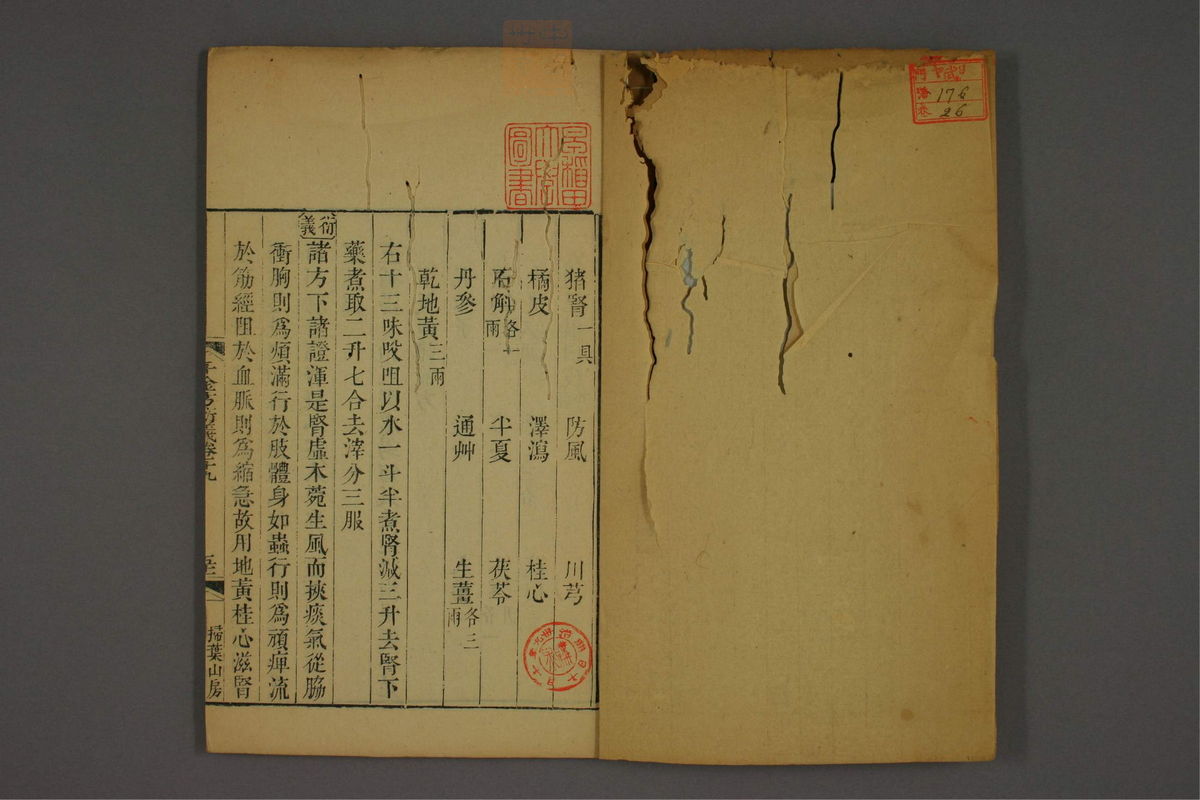 176
26
早稲田
大學
圖書
猪腎一具 防風 川芎
橘皮 澤瀉 桂心
石斛各一兩 半夏 茯苓
丹參 通艸 生薑各三兩
乾地黃三兩
右十三味㕮咀以水一斗半煮腎減三升去腎下
藥煮取二升七合去滓分三服
衍義
諸方下諸證渾是腎虛木菀生風而挾痰氣從脇
衝胸則爲煩滿行於肢體身如蟲行則爲頑痺流
於筋經阻於血脈則爲縮急故用地黃桂心滋腎
千金方衍義卷十九
掃葉山房